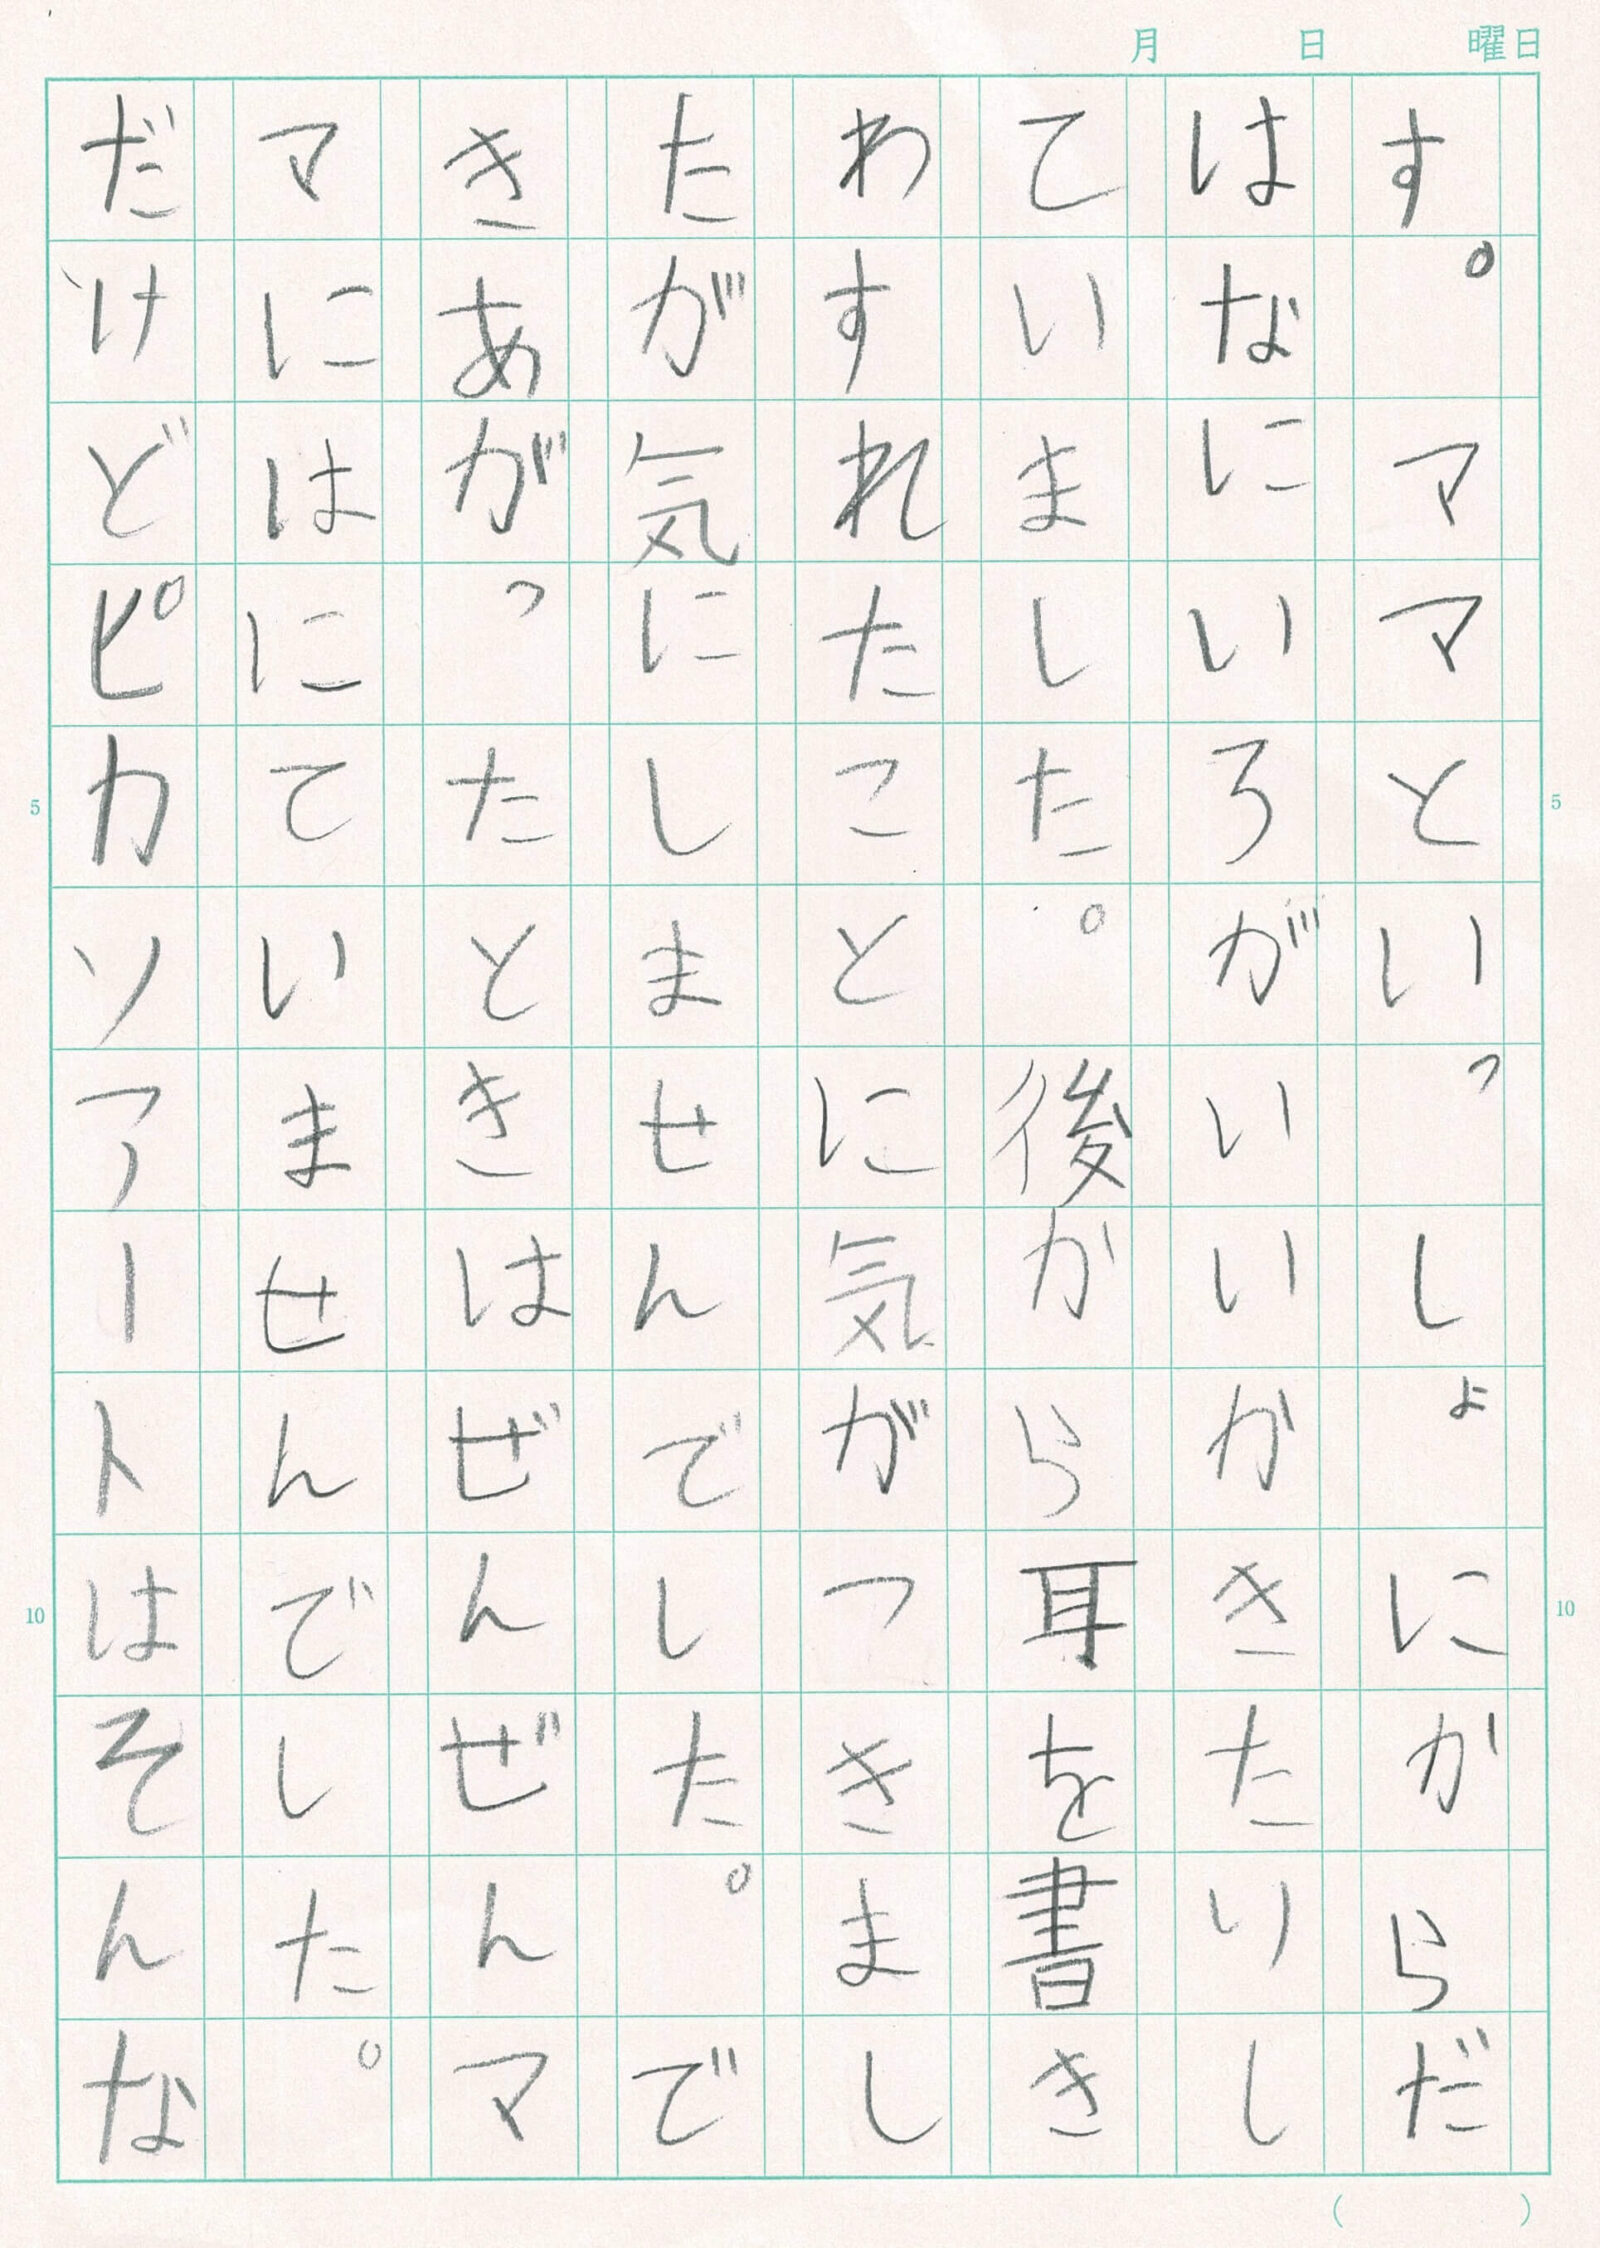 月 日 曜日
す。ママといっしょにからだ
はなにいろがいいかきたりし
ていました。後から耳を書き
わすれたことに気がつきまし
たが気にしませんでした。で
きあがったときはぜんぜんマ
マにはにていませんでした。
だけどピカソアートはそんな
5
10
5
10
( )